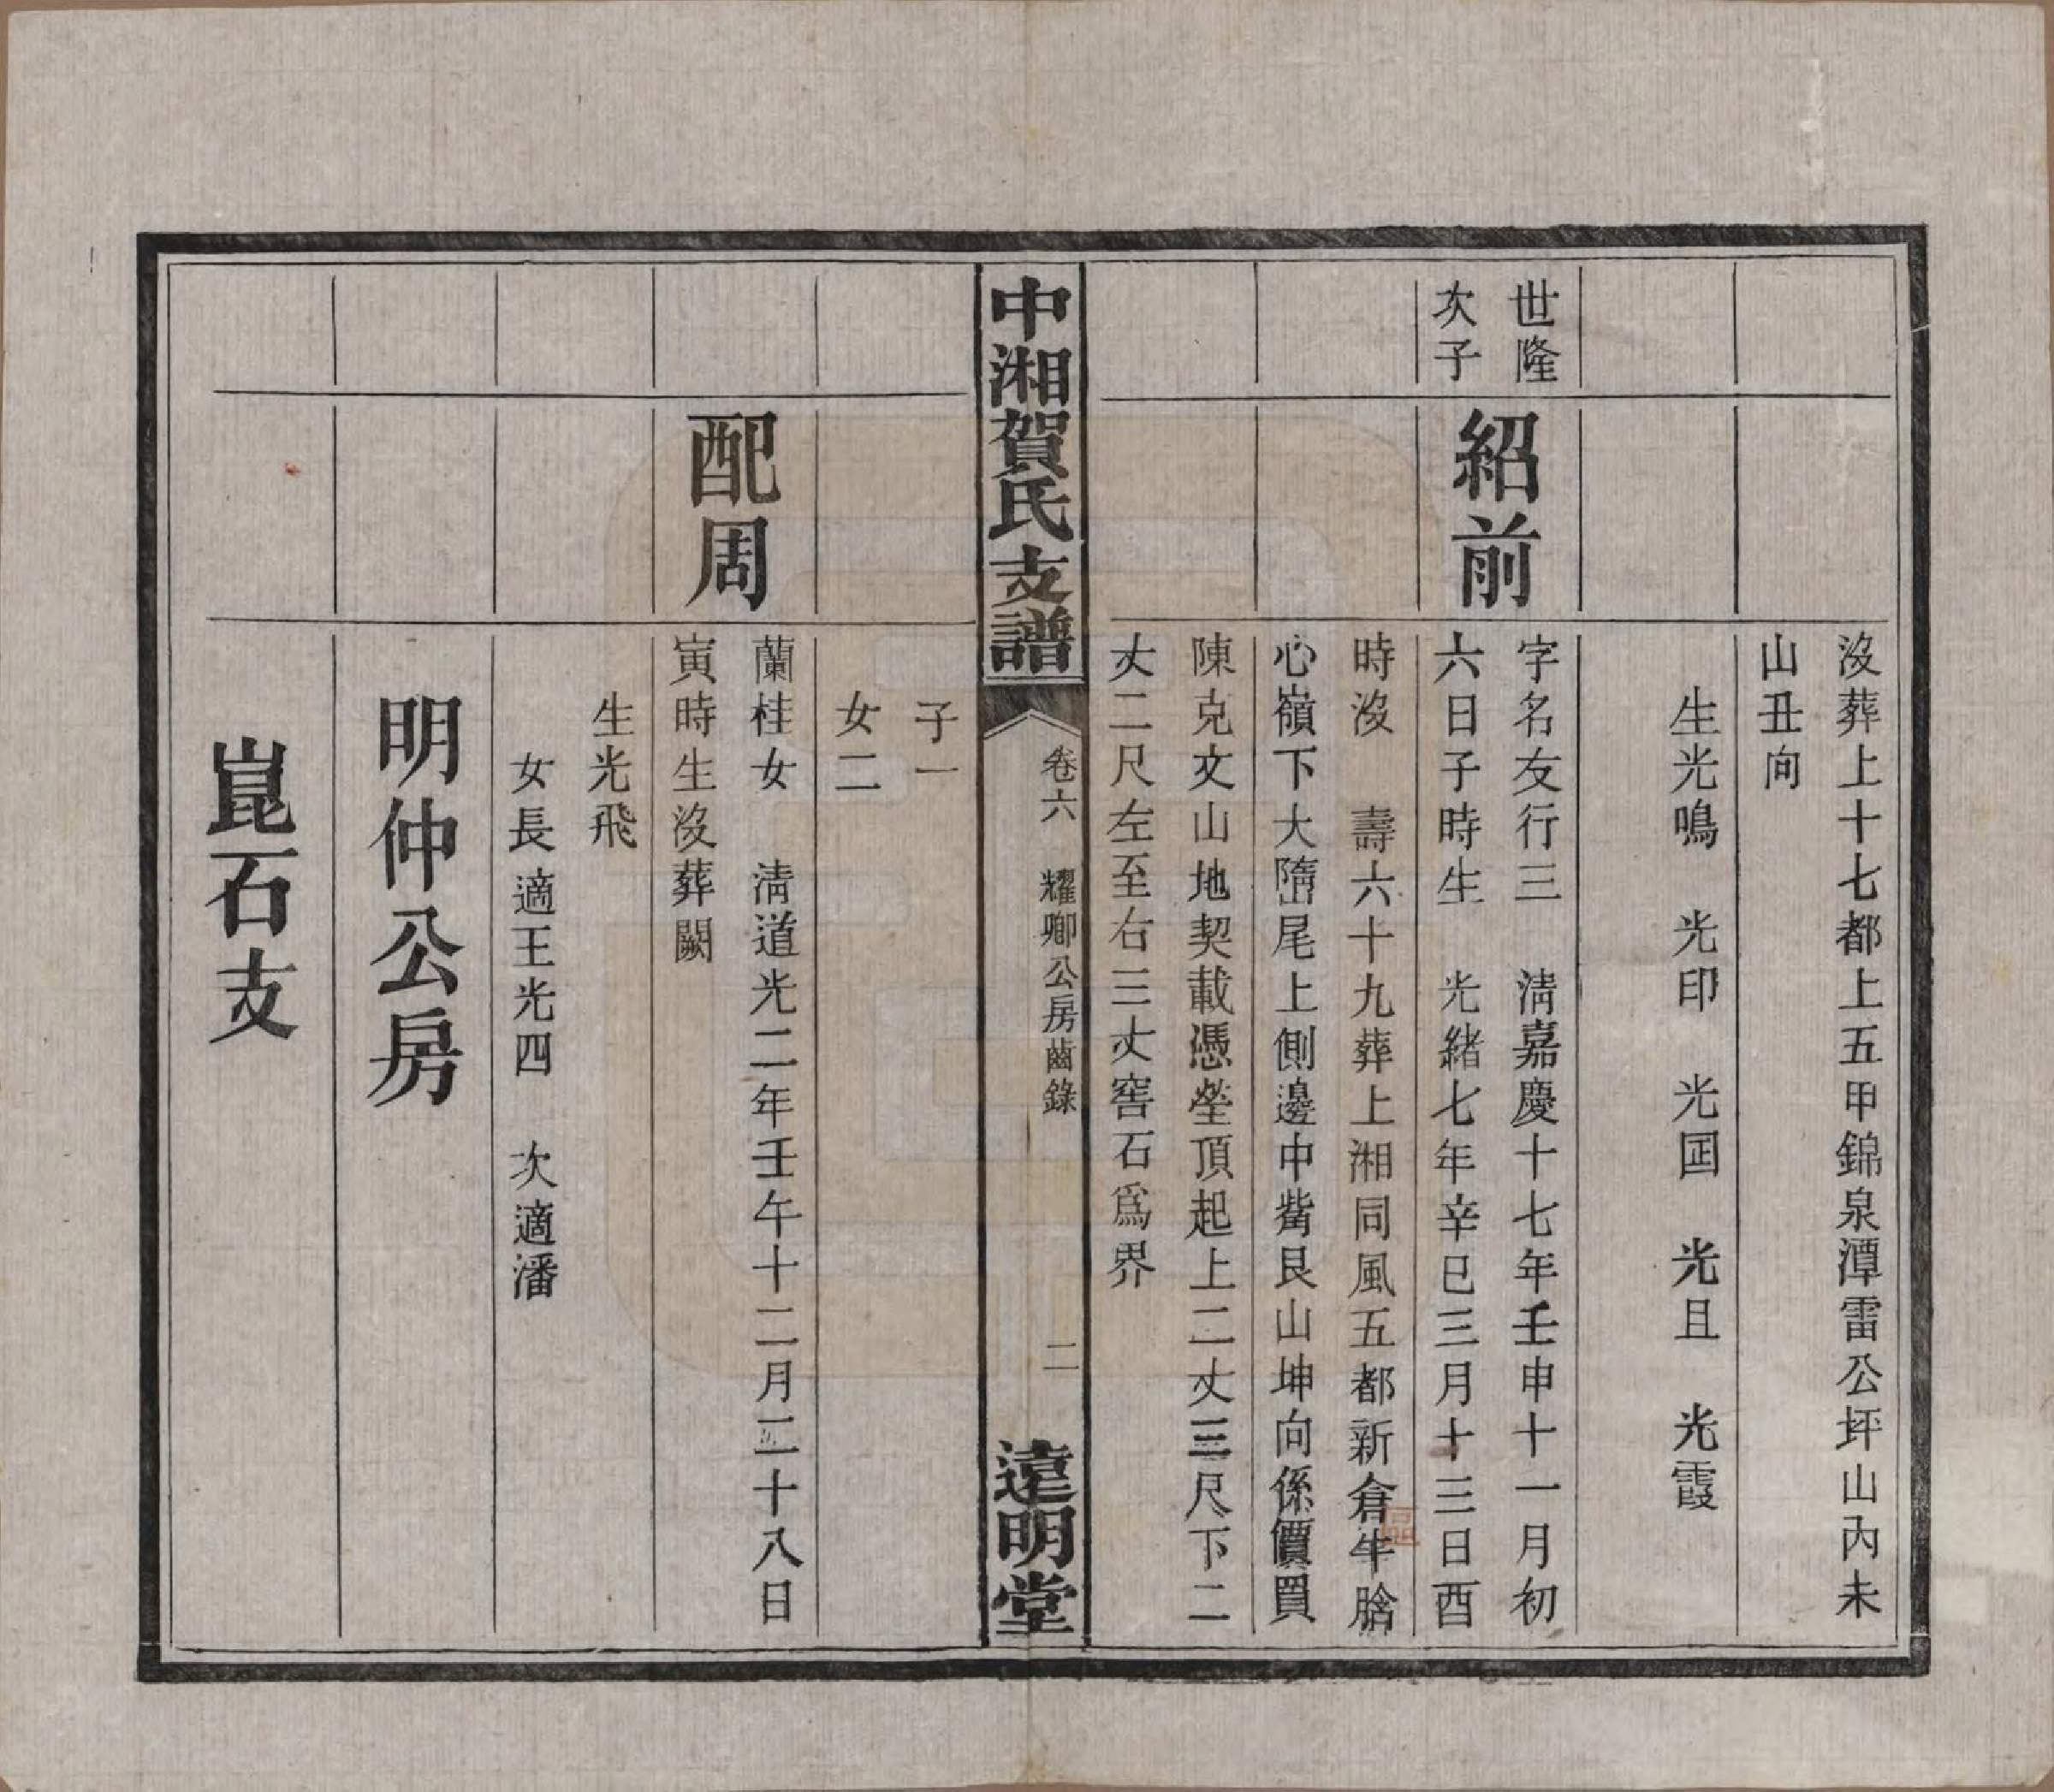 沒葬上十七都上五甲錦泉潭雷公坪山內未
山丑向
生光鳴　光印　光国　光且　光霞
世隆
次子
紹前
字名友行三　淸嘉慶十七年壬申十一月初
六日子時生　光緒七年辛巳三月十三日酉
時沒　壽六十九葬上湘同風五都新倉牛
心嶺下大隋尾上側邊中嘴艮山坤向係價買
陳克文山地契載憑塋頂起上二丈三尺下二
丈二尺左至右三丈窖石爲界
中湘賀氏支譜
卷六　耀卿公房齒錄
二
遠明堂
子一
女二
配周
蘭桂女　淸道光二年壬午十二月二十八日
寅時生沒葬闕
生光飛
女長適王光四　次適潘
明仲公房
崑石支